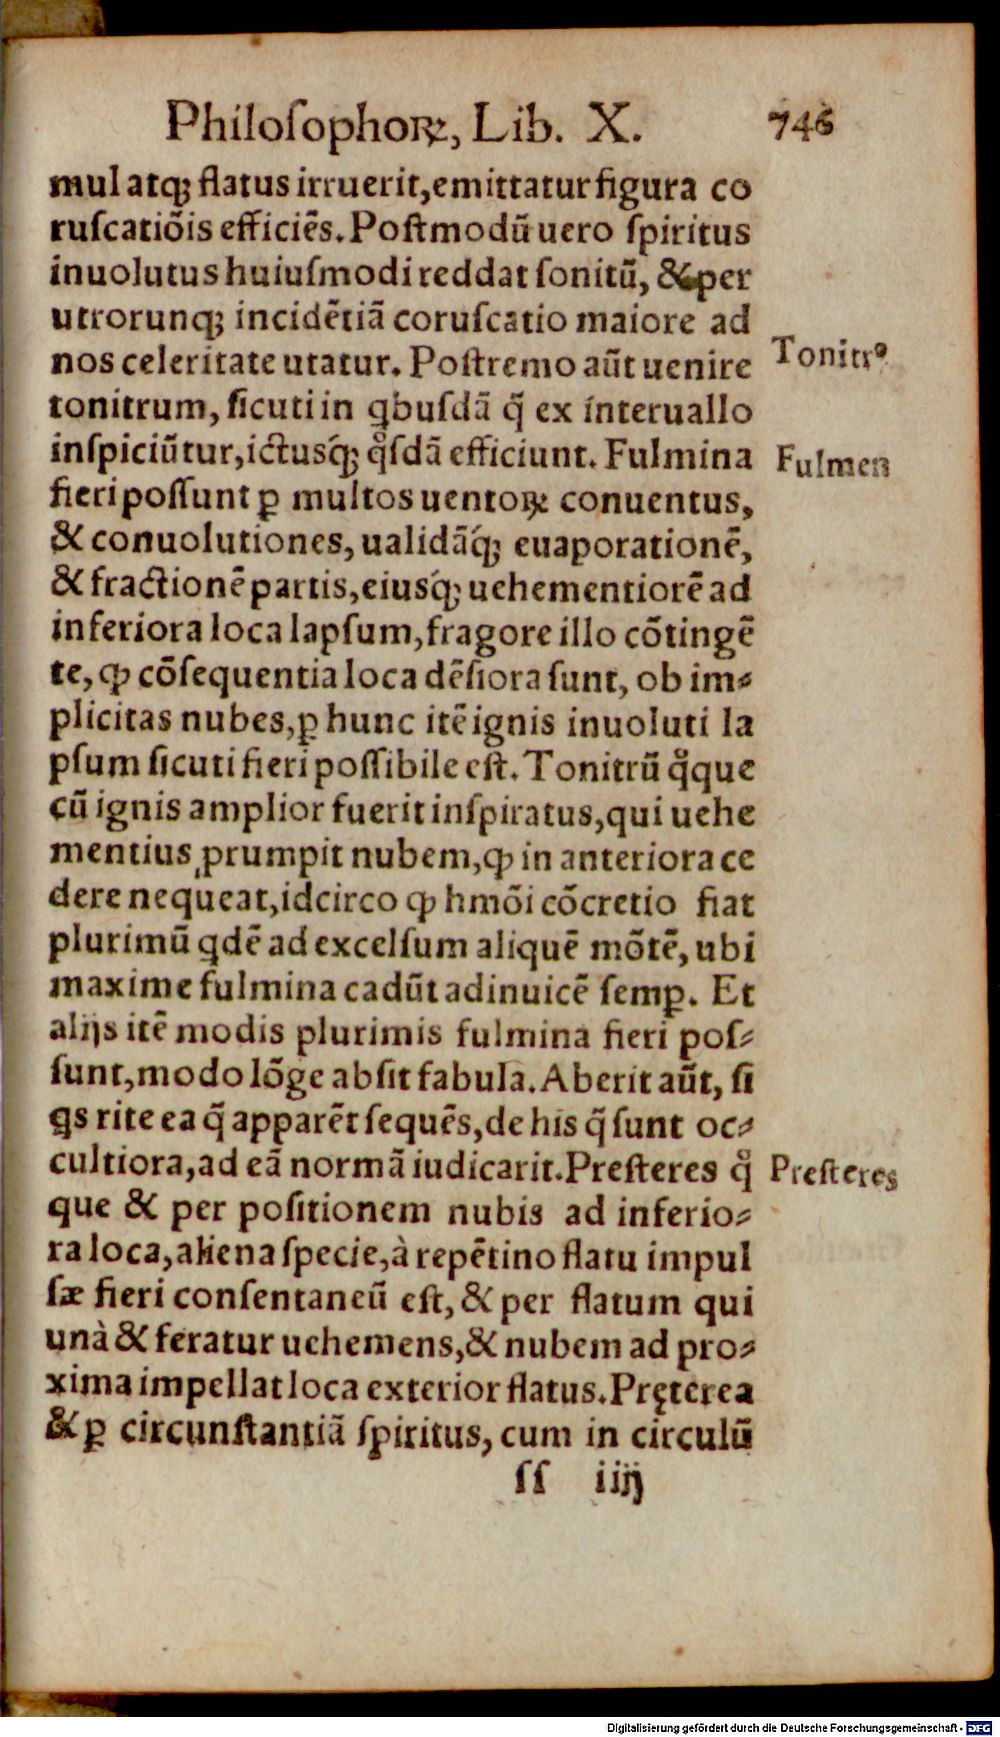 Philoſophoꝝ, Lib. X. 746
mul atq; flatus irruerit, emittatur figura co
ruſcatiōis efficiēs. Poſtmodū uero ſpiritus
inuolutus huiuſmodi reddat ſonitū, & per
utrorunq; incidētiā coruſcatio maiore ad
nos celeritate utatur. Poſtremo aūt uenire
Tonitrꝰ
tonitrum, ſicuti in qbuſdā q̄ ex interuallo
inſpiciūtur, ictusq́; qͦſdā efficiunt. Fulmina
Fulmen
fieri poſſunt ꝑ multos uentoꝝ conuentus,
& conuolutiones, ualidāq́; euaporationē,
& fractionē partis, eiusq́; uehementiorē ad
inferiora loca lapſum, fragore illo cōtingē
te, ꝙ cōſequentia loca dēſiora ſunt, ob im⸗
plicitas nubes, ꝑ hunc itē ignis inuoluti la
pſum ſicuti fieri poſſibile eſt. Tonitrū qͦque
cū ignis amplior fuerit inſpiratus, qui uehe
mentius ꝓrumpit nubem, ꝙ in anteriora ce
dere nequeat, idcirco ꝙ hmōi cōcretio fiat
plurimū qdē ad excelſum aliquē mōtē, ubi
maxime fulmina cadūt adinuicē ſemꝑ. Et
alijs itē modis plurimis fulmina fieri poſ⸗
ſunt, modo lōge abſit fabula. Aberit aūt, ſi
qs rite ea q̄ apparēt ſequēs, de his q̄ ſunt oc⸗
cultiora, ad eā normā iudicarit. Preſteres qͦ
Preſteres
que & per poſitionem nubis ad inferio⸗
ra loca, aliena ſpecie, à repētino flatu impul
ſæ fieri conſentaneū eſt, & per flatum qui
unà & feratur uehemens, & nubem ad pro⸗
xima impellat loca exterior flatus. Pręterea
& ꝑ circunſtantiā ſpiritus, cum in circulū
ſſ iiij
Digitalisierung gefördert durch die Deutsche Forschungsgemeinschaft - DFG